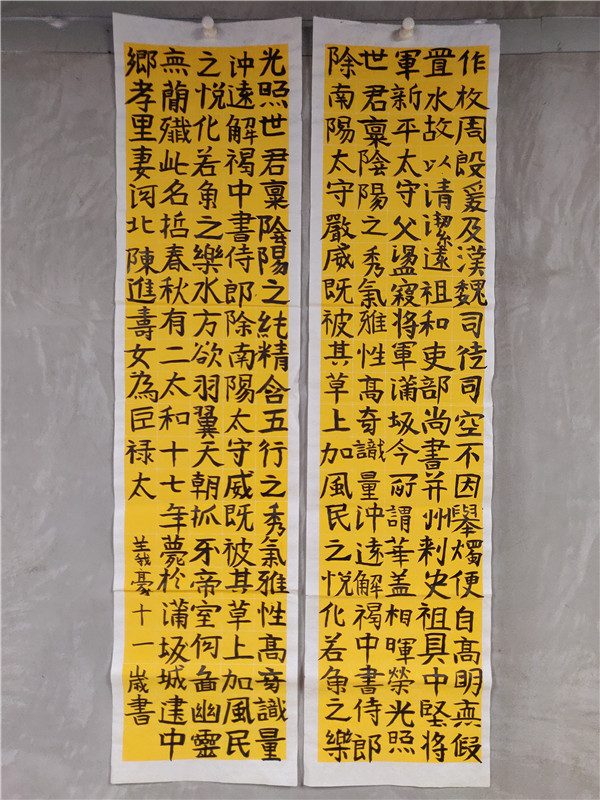 作牧周殷爰及漢魏司徒司空不因舉燭便自高明真假
置水故以清潔遠祖和吏部尚書并州刺史祖具中堅將
軍新平太守父盪寇將軍蒲坂今所謂華蓋相暉榮光照
世君稟陰陽之秀氣雅性高奇識量沖遠解褐中書侍郎
除南陽太守嚴威既被其草上加風民之悅化若魚之樂
光照世君稟陰陽之純精含五行之秀氣雅性高奇識量
沖遠解褐中書侍郎除南陽太守威既被其草上加風民
之悅化若魚之樂水方欲羽翼天朝抓牙帝室何啚幽靈
無蕑殲此名哲春秋有二太和十七年薨於蒲坂城建中
鄉孝里妻河北陳進壽女為巨祿太
羲豪十一歲書